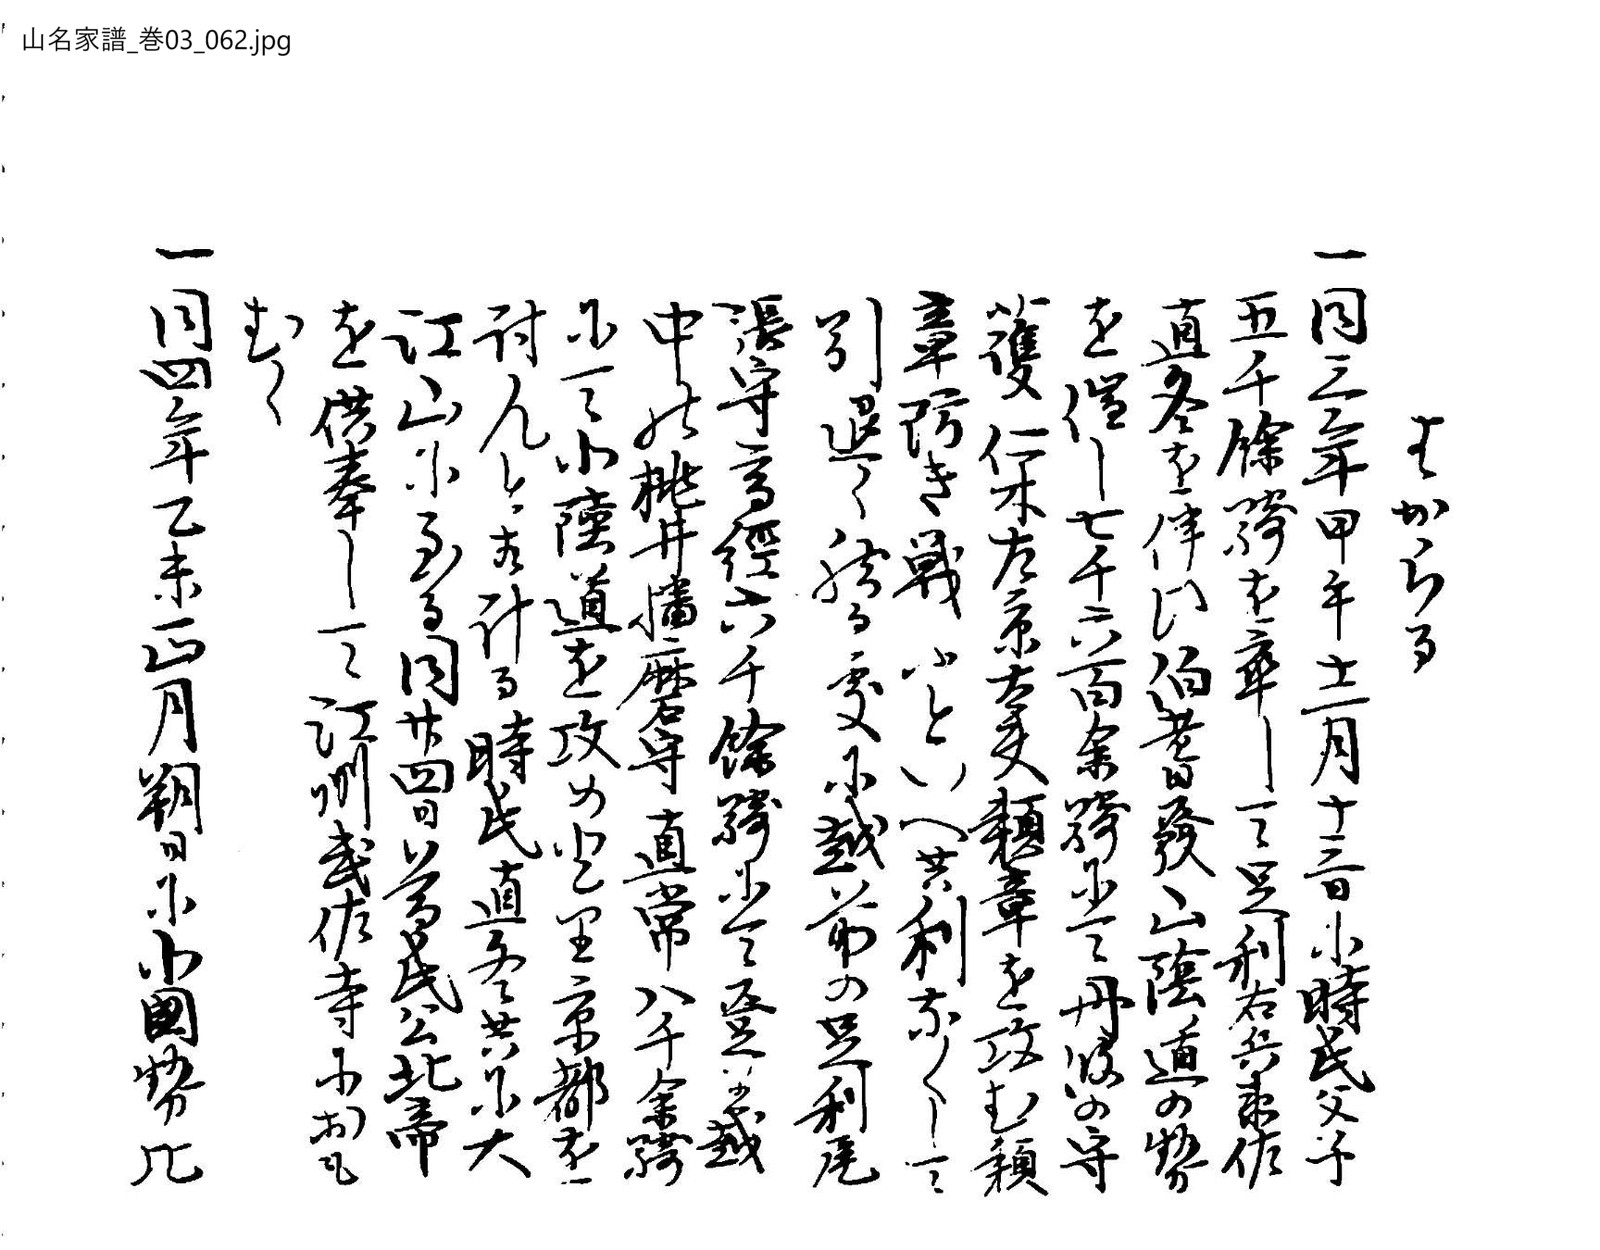 山名家譜_巻03_062.jpg
はからる
一同三年甲午十二月十三日小時氏父子
五千餘騎を率して足利右兵衛佐
直冬を伴ひ伯耆發山陰道の勢
を催し七千六百余騎にて丹後の守
護仁木左京大夫頼章を攻む頼
章防き戦ふといへ共利なくして
引退く然る處に越前の足利尾
張守高經六千餘騎にて登 越
中の桃井播磨守直常八千余騎
にて北陸道を攻め登り京都を
討んと計る時氏直冬共に大
江山に至る同廿四日尊氏公北帝
を供奉して江州武佐寺におも
むく
一同四年乙未正月朔日に北國勢比